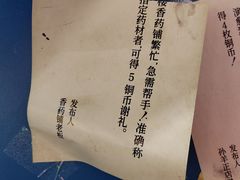 楼香药铺繁忙，急需帮手！准确称
指定药材者，可得5铜币谢礼。
发布人
香药铺老板
得4枚铜币！
发布人
孙羊正店